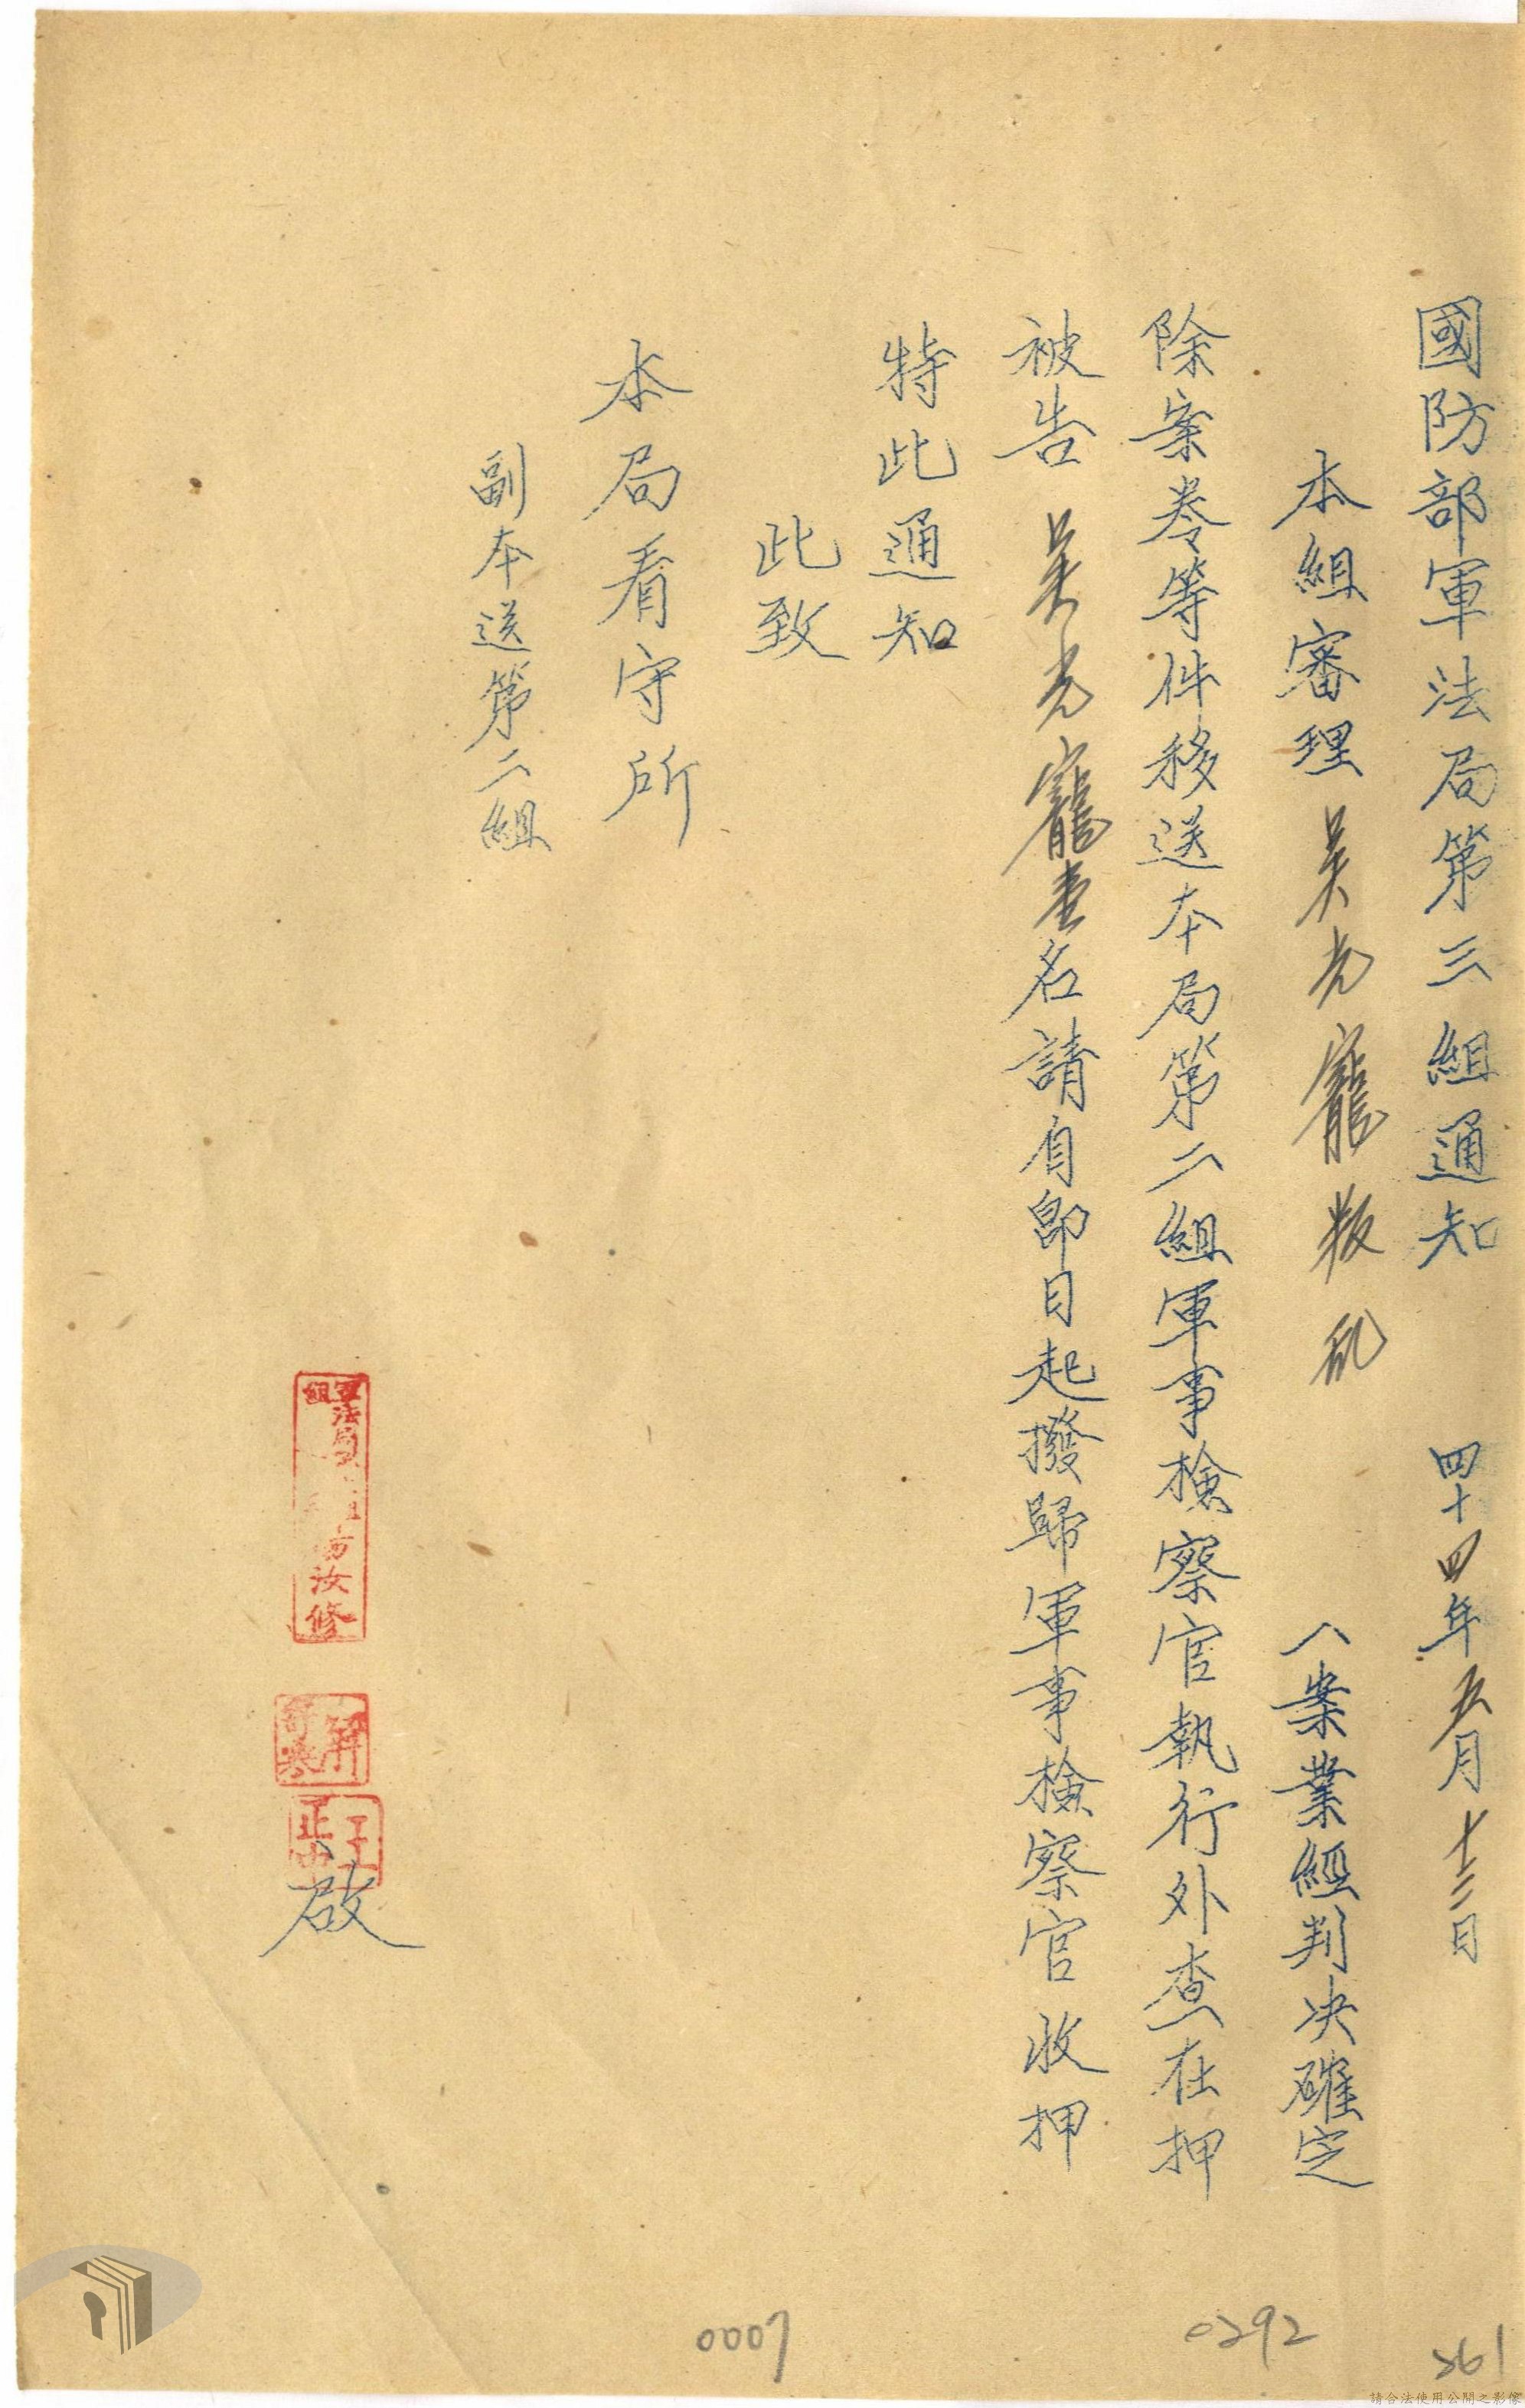 國防部軍法局第三組通知 四十四年五月十三日
本組審理吴光寵叛乱 一案業經判决確定
除案卷等件移送本局第二組軍事檢察官執行外查在押
被告吴光寵壹名請自即日起撥歸軍事檢察官收押
特此通知
此致
本局看守所
副本送第二組
軍法局 組 汝修
啟
0007
0292
361
請合法使用公開之影像